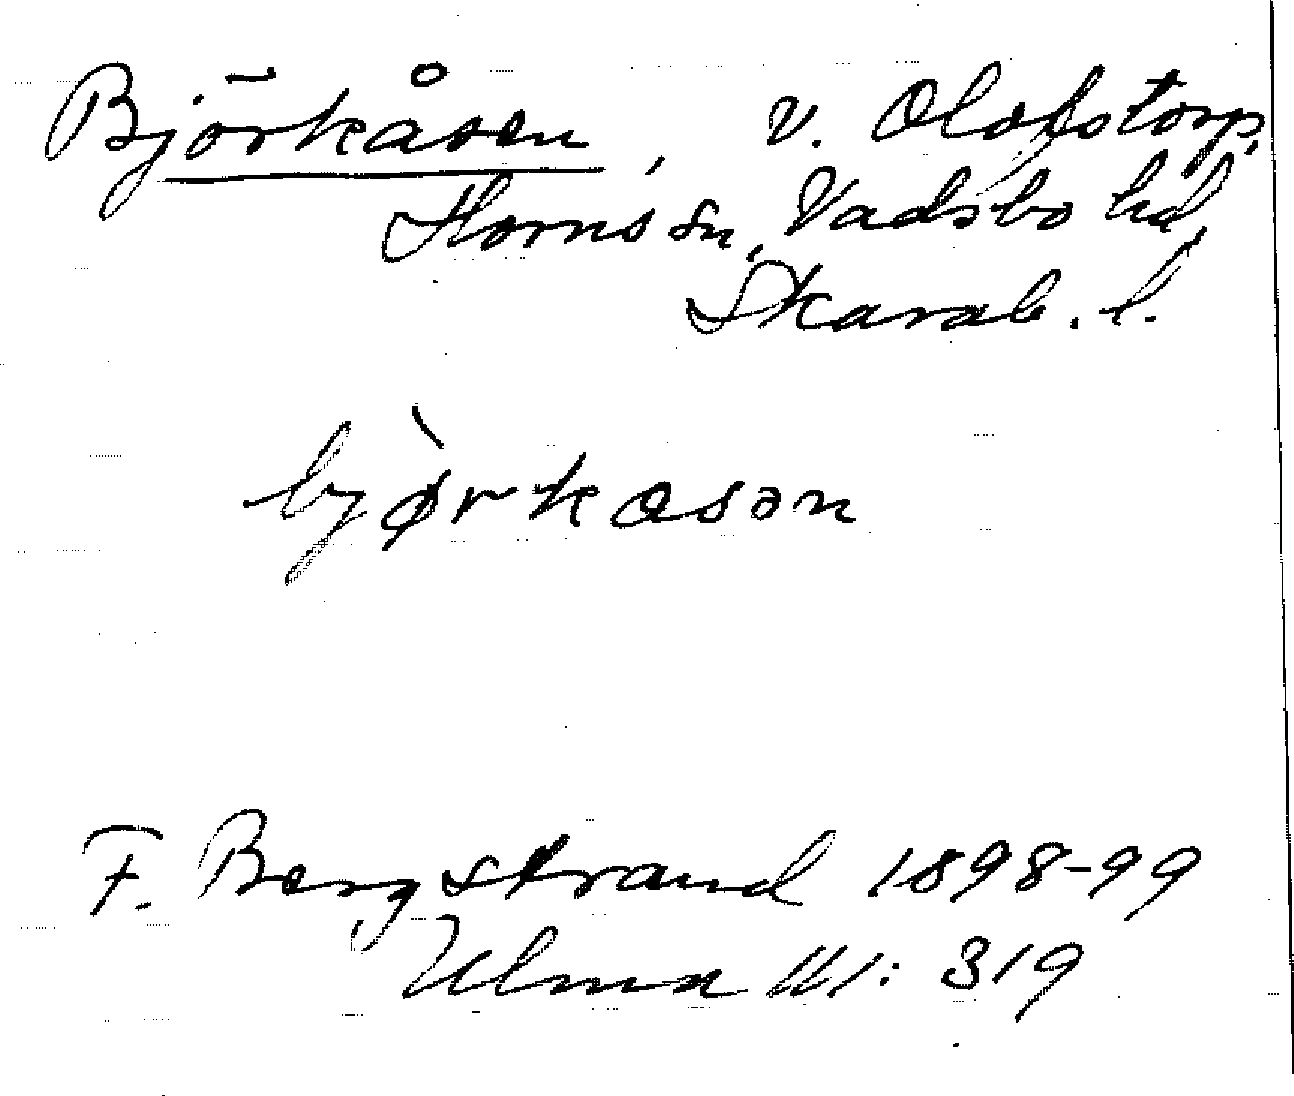 Björkåsen, v. Olofstorp,
Horns sn, Vadsbo hd,
Skarab. l.
bjø̀rkasən
F. Bergstrand 1898-99
Ulma 111: 319